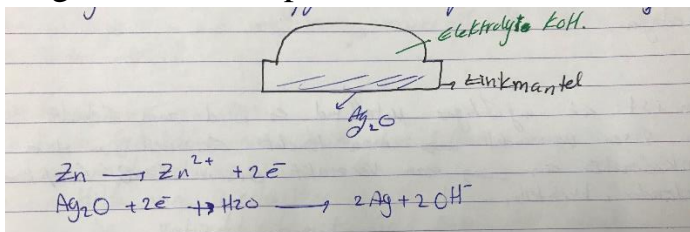 Elektrolyte KOH.
Zinkmantel
Ag₂O
Zn → Zn²⁺ + 2e⁻
Ag₂O + 2e⁻ + H2O → 2Ag + 2OH⁻